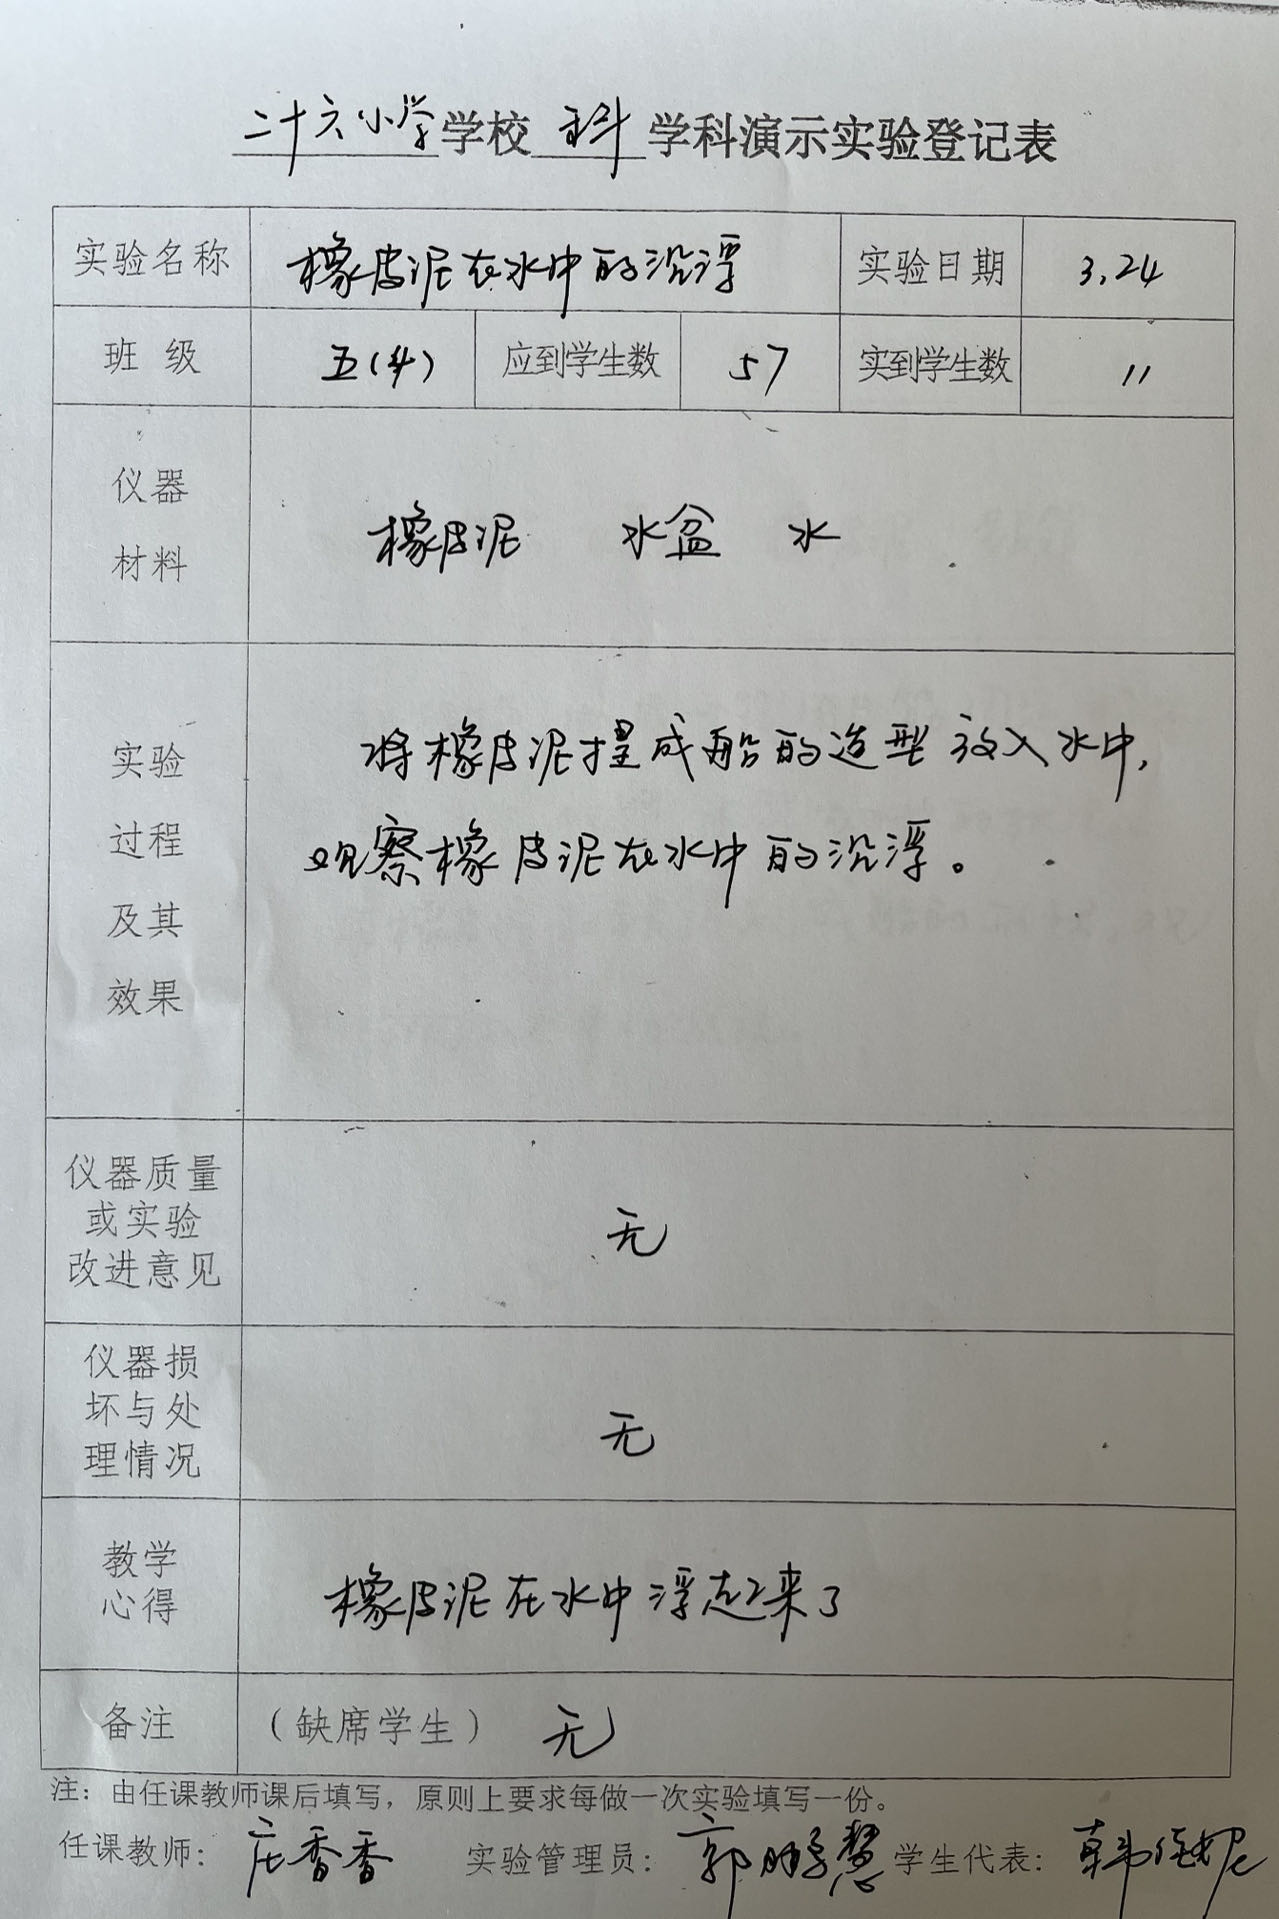 二十六小学学校 科 学科演示实验登记表
实验名称 橡皮泥在水中的沉浮 实验日期 3.24
班 级 五(4) 应到学生数 57 实到学生数 〃
仪器
材料
橡皮泥 水盆 水
实验
过程
及其
效果
将橡皮泥捏成船的造型放入水中,
观察橡皮泥在水中的沉浮。
仪器质量
或实验
改进意见
无
仪器损
坏与处
理情况
无
教学
心得
橡皮泥在水中浮起来了
备注 (缺席学生) 无
注: 由任课教师课后填写, 原则上要求每做一次实验填写一份。
任课教师: 庄香香 实验管理员: 郭鹏慧 学生代表: 韩